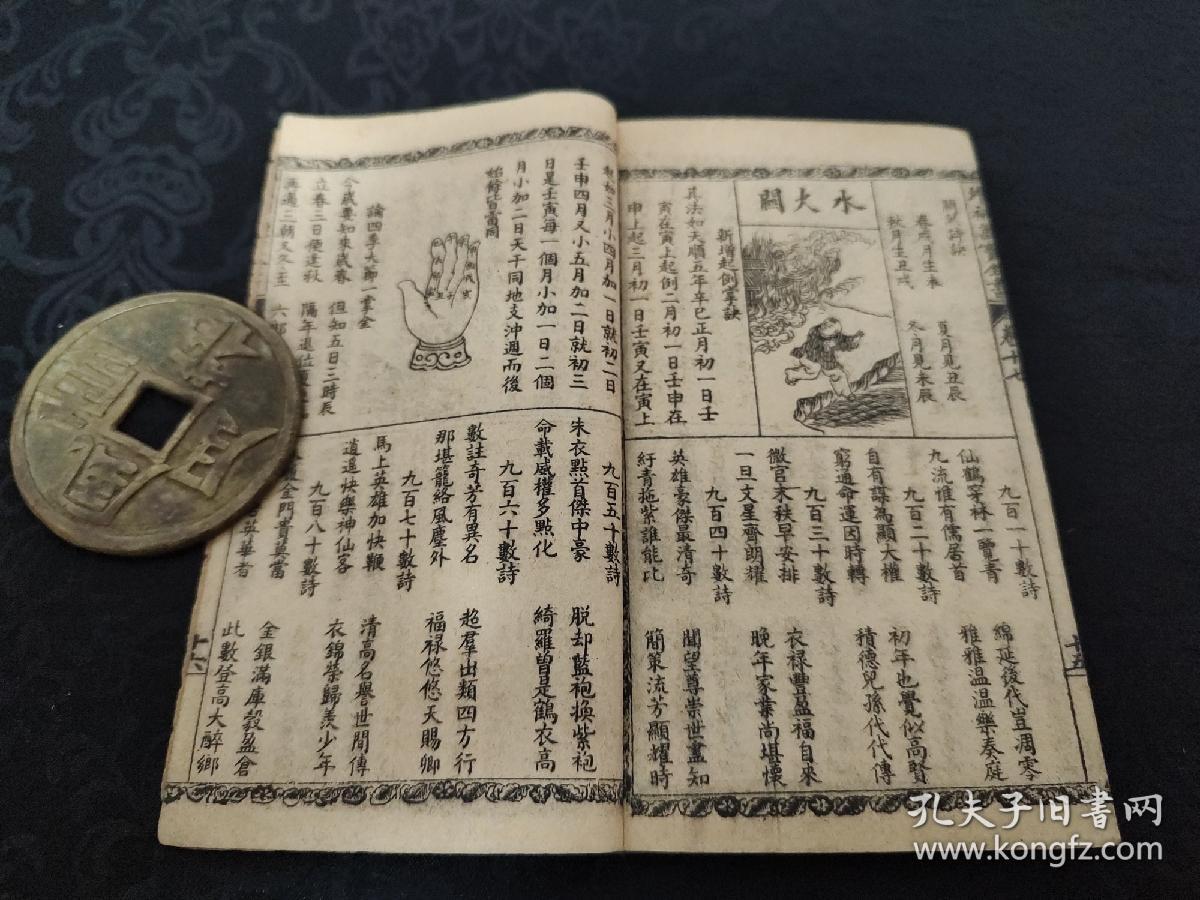 水火關
關煞詩訣
春戌月生未
夏月見丑辰
秋月生丑戌
冬月見未辰
新增起例掌訣
其法如天順五年辛巳正月初一日壬
寅在寅上起倒二月初一日壬申在
申上起三月初一日壬寅又在寅上
九百一十數詩
仙鶴穿林一覽青
綿延後代豈凋零
九流惟有儒居首
雅雅溫溫樂泰庭
九百二十數詩
自有謀為顯大權
初年也覺似高賢
窮通命運因時轉
積德兒孫代代傳
九百三十數詩
微官末秩早安排
衣祿豐盈福自來
一旦文星齊朗耀
晚年家業尚堪懷
九百四十數詩
英雄豪傑最清奇
聞望尊崇世盡知
紆青拖紫誰能比
簡策流芳顯耀時
十五
壬申四月又小五月加二日就初三
日是壬寅每一個月小加一日二個
月小加二日天干同地支沖週而後
始餘皆當同
論四季大節一掌金
今歲要知來歲春
但知五日三時辰
立春三日便逢秋
九百五十數詩
朱衣點首傑中豪
脱却藍袍換紫袍
命載威權多點化
綺羅曾是鶴衣高
九百六十數詩
數註奇芳有異名
超羣出類四方行
那堪籠絡風塵外
福禄悠悠天賜卿
九百七十數詩
馬上英雄加快鞭
清高名譽世間傳
逍遥快樂神仙客
衣錦榮歸羨少年
九百八十數詩
金門貴莫當
金銀滿庫穀盈倉
英華者
此數登高大醉鄉
十六
孔夫子旧书网
www.kongfz.com